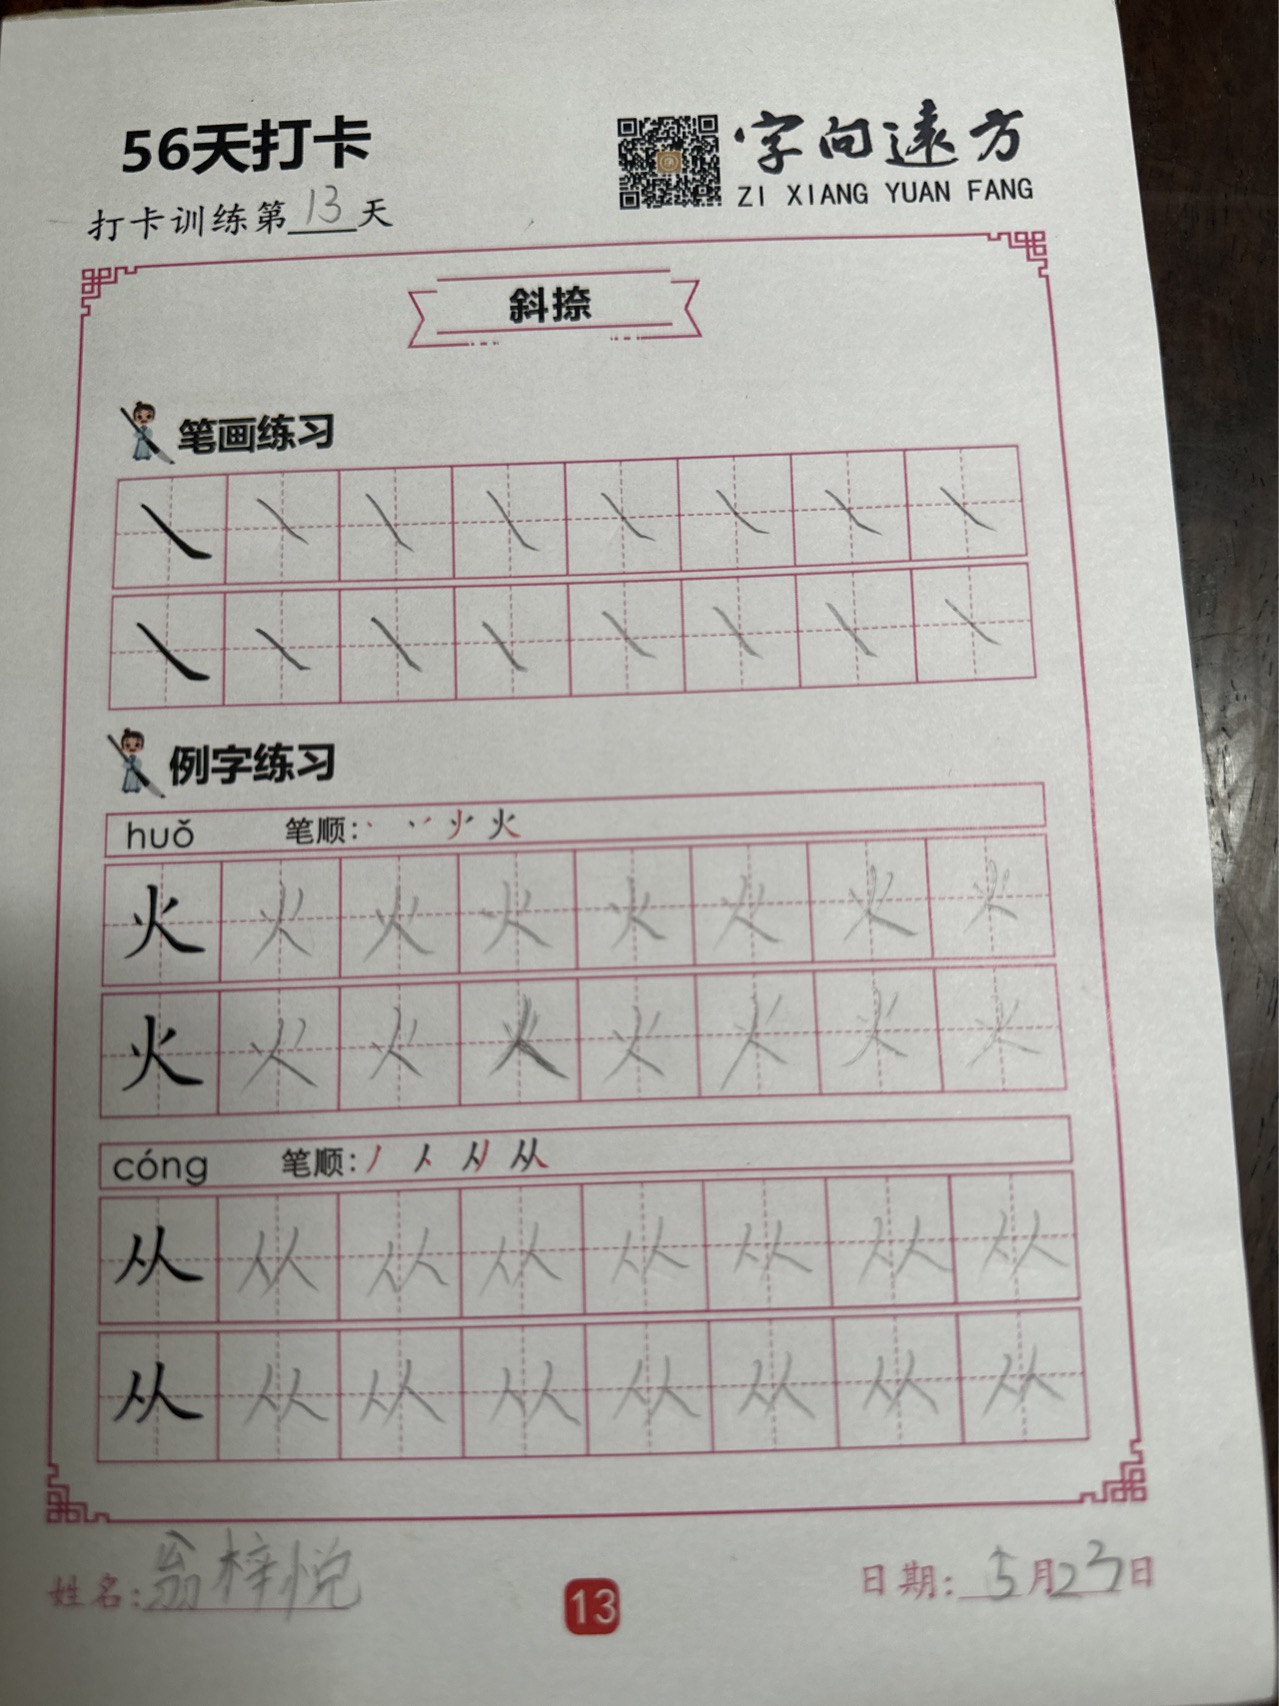 56天打卡
字向遠方
ZI XIANG YUAN FANG
打卡训练第13天
斜捺
笔画练习
㇏㇏㇏㇏㇏㇏㇏㇏
㇏㇏㇏㇏㇏㇏㇏㇏
例字练习
huǒ 笔顺: 火
火火火火火火火火
火火火火火火火火
cóng 笔顺: 丿 人 从
从从从从从从从从
从从从从从从从从
姓名:翁梓悦
13
日期:5月23日